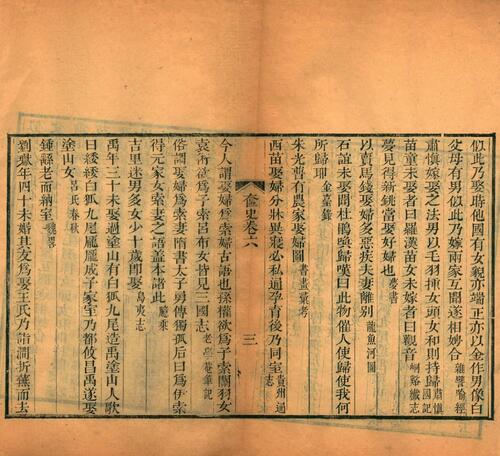 似此乃娶時他國有女貌亦端正亦以金作男像白
父母有男似此乃嫁兩家互聞遂相娉合雜譬喻經
肅慎嫁娶之法男以毛羽揷女頭女和則持歸肅慎國記
苗童未娶者曰羅漢苗女未嫁者曰觀音峒谿纖志
夢見得新銚當娶好婦也夢書
以賣馬錢娶婦多惡疾夫妻離別龍魚河圖
石誼未娶聞杜鵑喚歸嘆曰此物催人使歸使我何
所歸耶金臺錄
朱光普有農家娶婦圖書畫彙考
西苗娶婦分牀異寢必私通孕育後乃同室貴州通志
奩史卷六
三
今人謂娶婦爲索婦古語也孫權欲爲子索關羽女
袁術欲爲子索呂布女皆見三國志老學菴筆記
俗謂娶婦爲索妻隋書太子勇傳獨孤后曰爲伊索
得元家女索妻之語蓋本諸此
吉里迷男多女少十歲卽娶島夷志
禹年三十未娶過塗山有白狐九尾造禹塗山人歌
曰綏綏白狐九尾龐龐成子家室乃都攸昌禹遂娶
塗山女呂氏春秋
鍾繇老而納室魏畧
劉嶽年四十未婚其友爲娶王氏乃詣澗折蘸而去